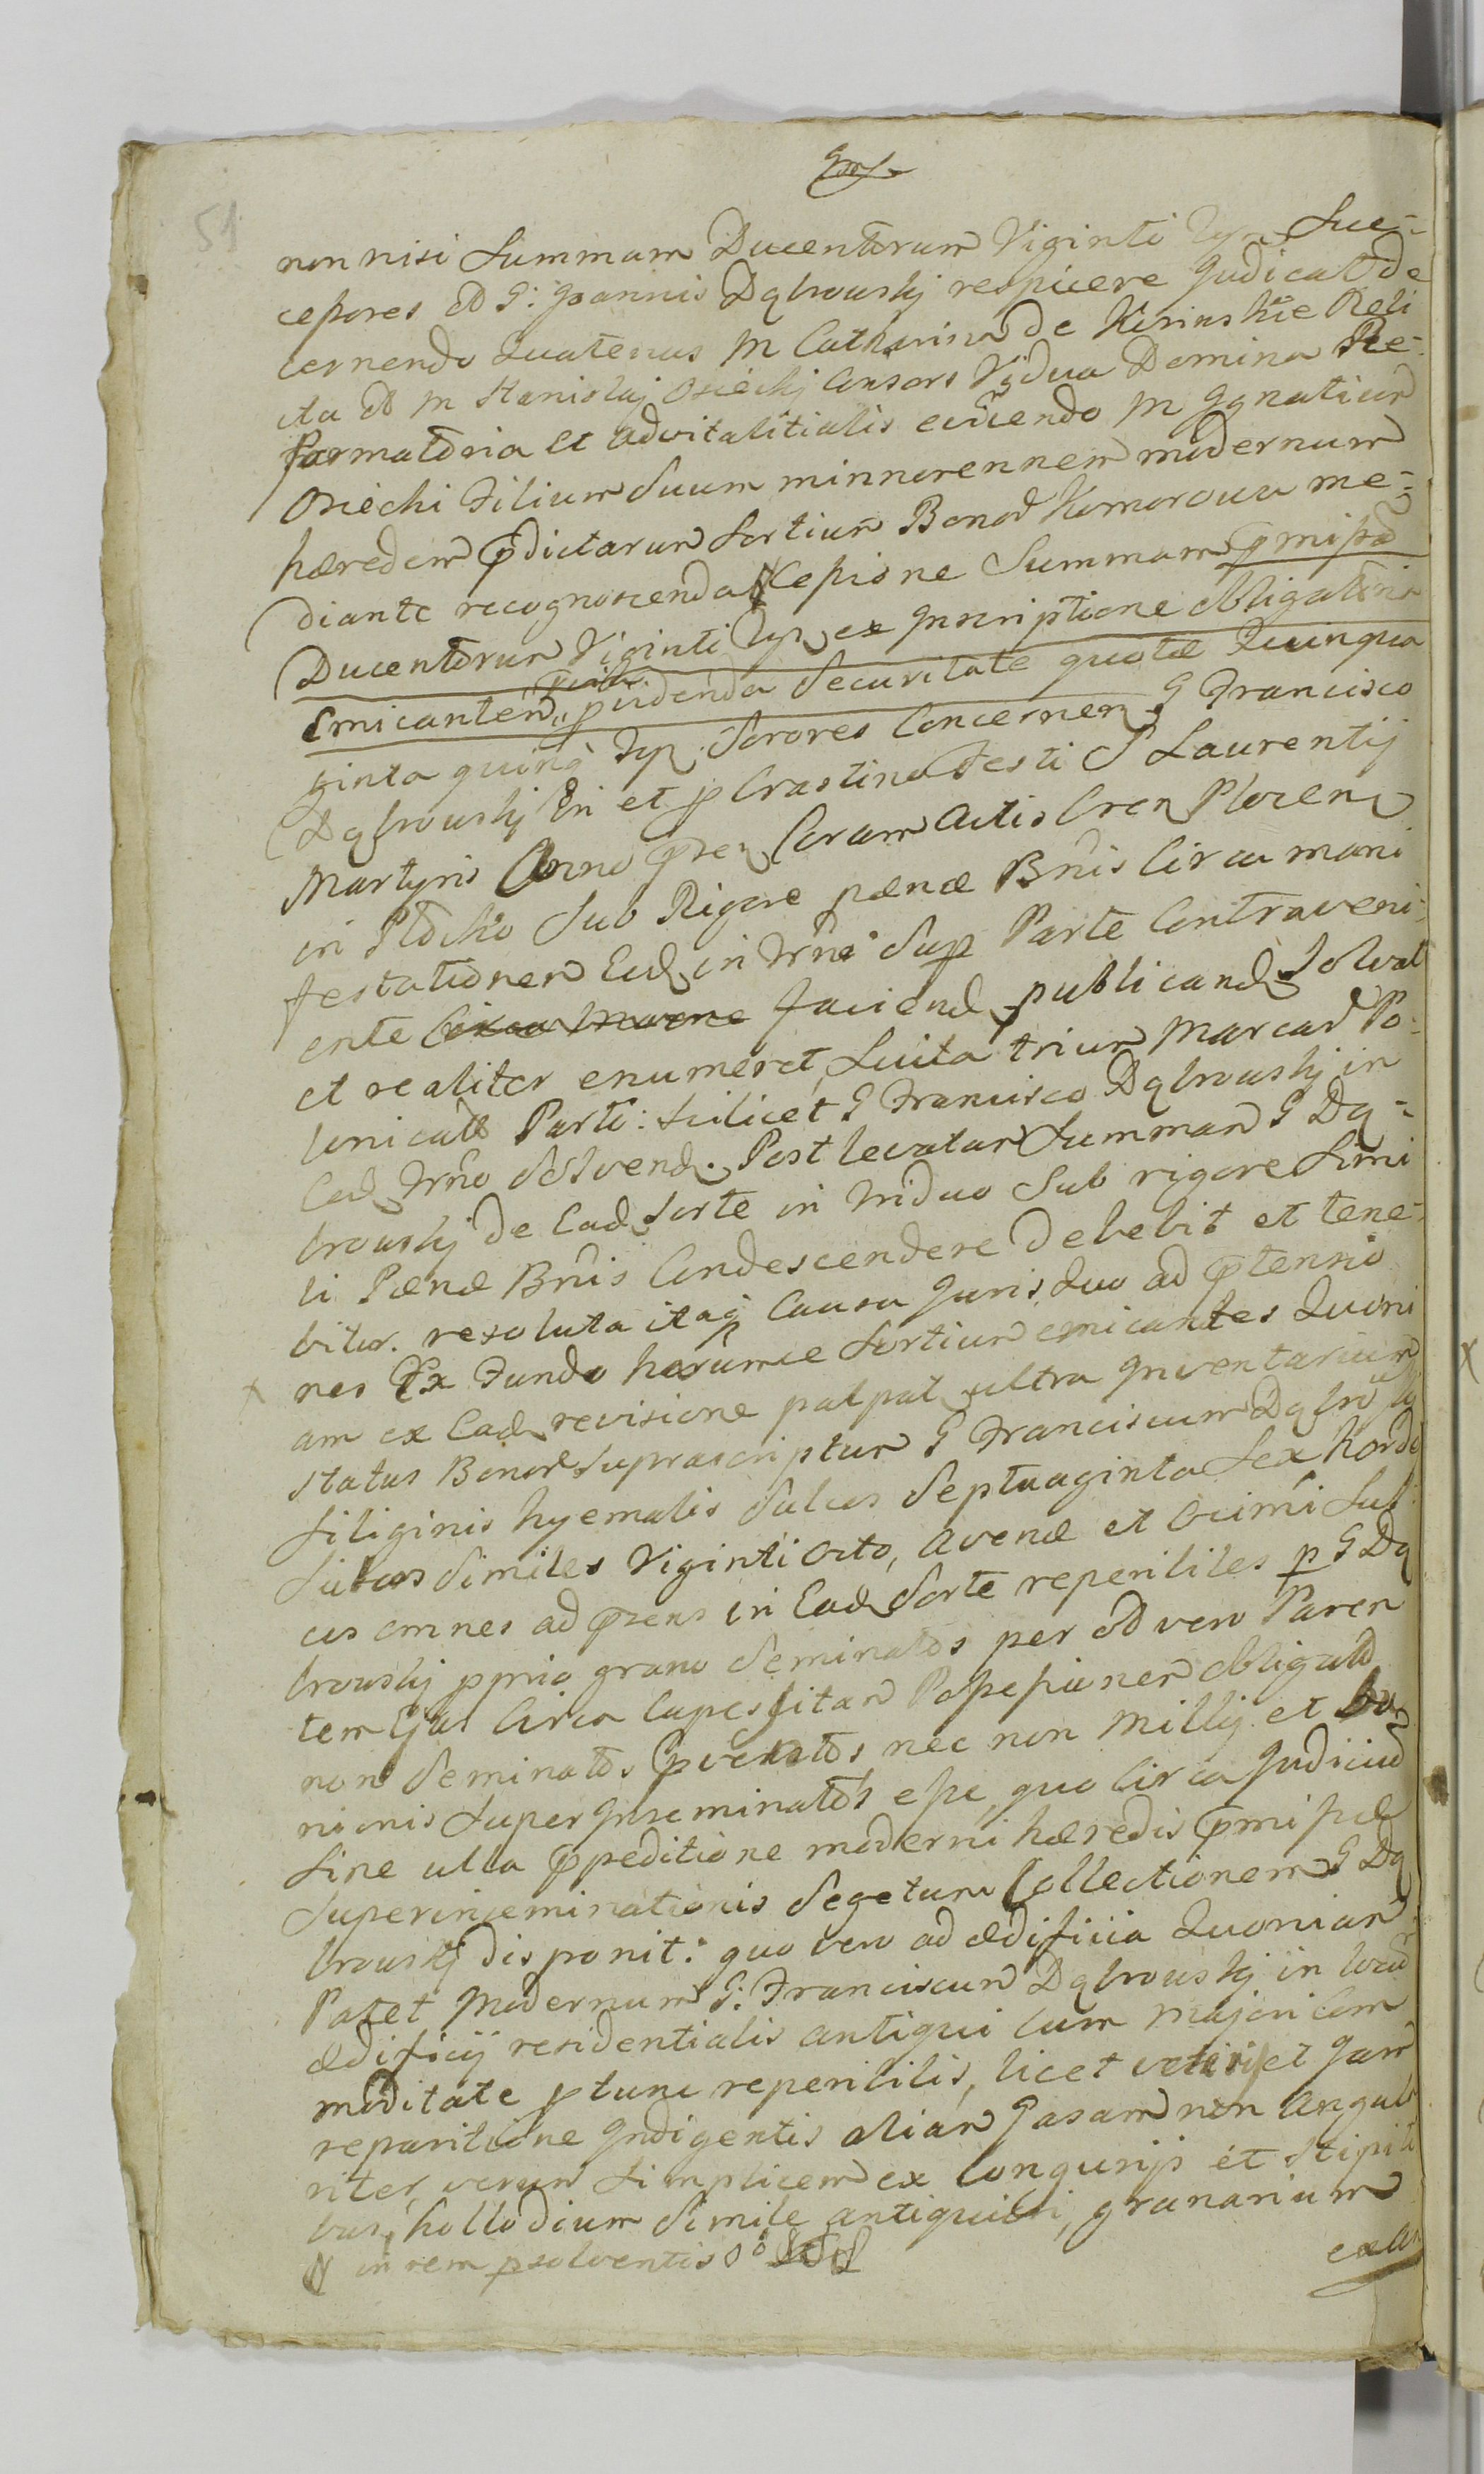 51
non nisi Summam Ducentorum Viginti Typ. Suc-
cessores ol G: Joannis Dąbrowskj respicere Judicat de
cernendo Quatenus M Catharina de Kisinskie Reli
cta ol M Stanislaj Osieckj Consors Vidua Domina Re-
formatoria et advitalitialis evicendo M Jgnatium
Osiecki Filium Suum minnorennem modernum
hæredem pdictarum Sortium Bonor Komorowa me-
diante recognoscenda Cessione Summam pmissa
Ducentorum Viginti Typ ex Jnscriptione obligatoria
Emicantem, pvidenda Securitate quotæ Quinqua
ginta quinq Typ Sorores Concernen. G Francisco
Dąbrowskj in et p Crastino Festi S Laurentij
Martyris Anno pren Coram Actis Cren Plocen
in Plocko Sub Rigore pænæ Bnis Circa mani
festationem Ead in Trno Sup Parte Contraveni-
ente Circa Marne faciend publicand Solvat
et realiter enumeret, Luita trium Marcar Po-
lonicali Parti: Scilicet G Francisco Dąbrowskj in
Eod Trno Solvend. Post levatam Summam G Dą-
browskj de Ead Sorte in Triduo Sub rigore Simi
li Pænæ Bnis Condescendere debebit et tene-
bitur. resoluta itaq Causa Juris, Quo ad ptensio
nes Ex Fundo harumce Sortium emicantes Quoni
am ex Ead revisione palpat ultra Jnventarium
status Bonor Suprascriptum G Franciscum Dąbrowskj
Siliginis hyemalis Sulcos Septuaginta Sex hordei
Sulcos Similes Viginti Octo, avenæ et Ocimi Sul
cos omnes ad præns in Ead Sorte reperibiles p G Dą
browskj pprio grano Seminatos per ol vero Paren
tem Ejus Circa Capessitam Possessionem obligat
non Seminatos pventos nec non Millij et
nionis Super Jnseminatos esse, quo Circa Judicium
Sine ulla ppeditione moderni hæredis pmissæ
Superinseminationis Segetum Collectionem G Dą
browskj disponit: quo vero ad ædificia Quoniam
Patet Modernum G: Franciscum Dąbrowskj in loco
ædificij residentialis antiqui cum majori com
moditate p tunc reperibilis, licet veteris et Jam
reparatione Jndigentis aliam Casam non angula
riter, verum Simplicem ex Longurijs et Stipiti
bus, hollodium Simile antiquitti, granarium
in rem psolventis
ex An